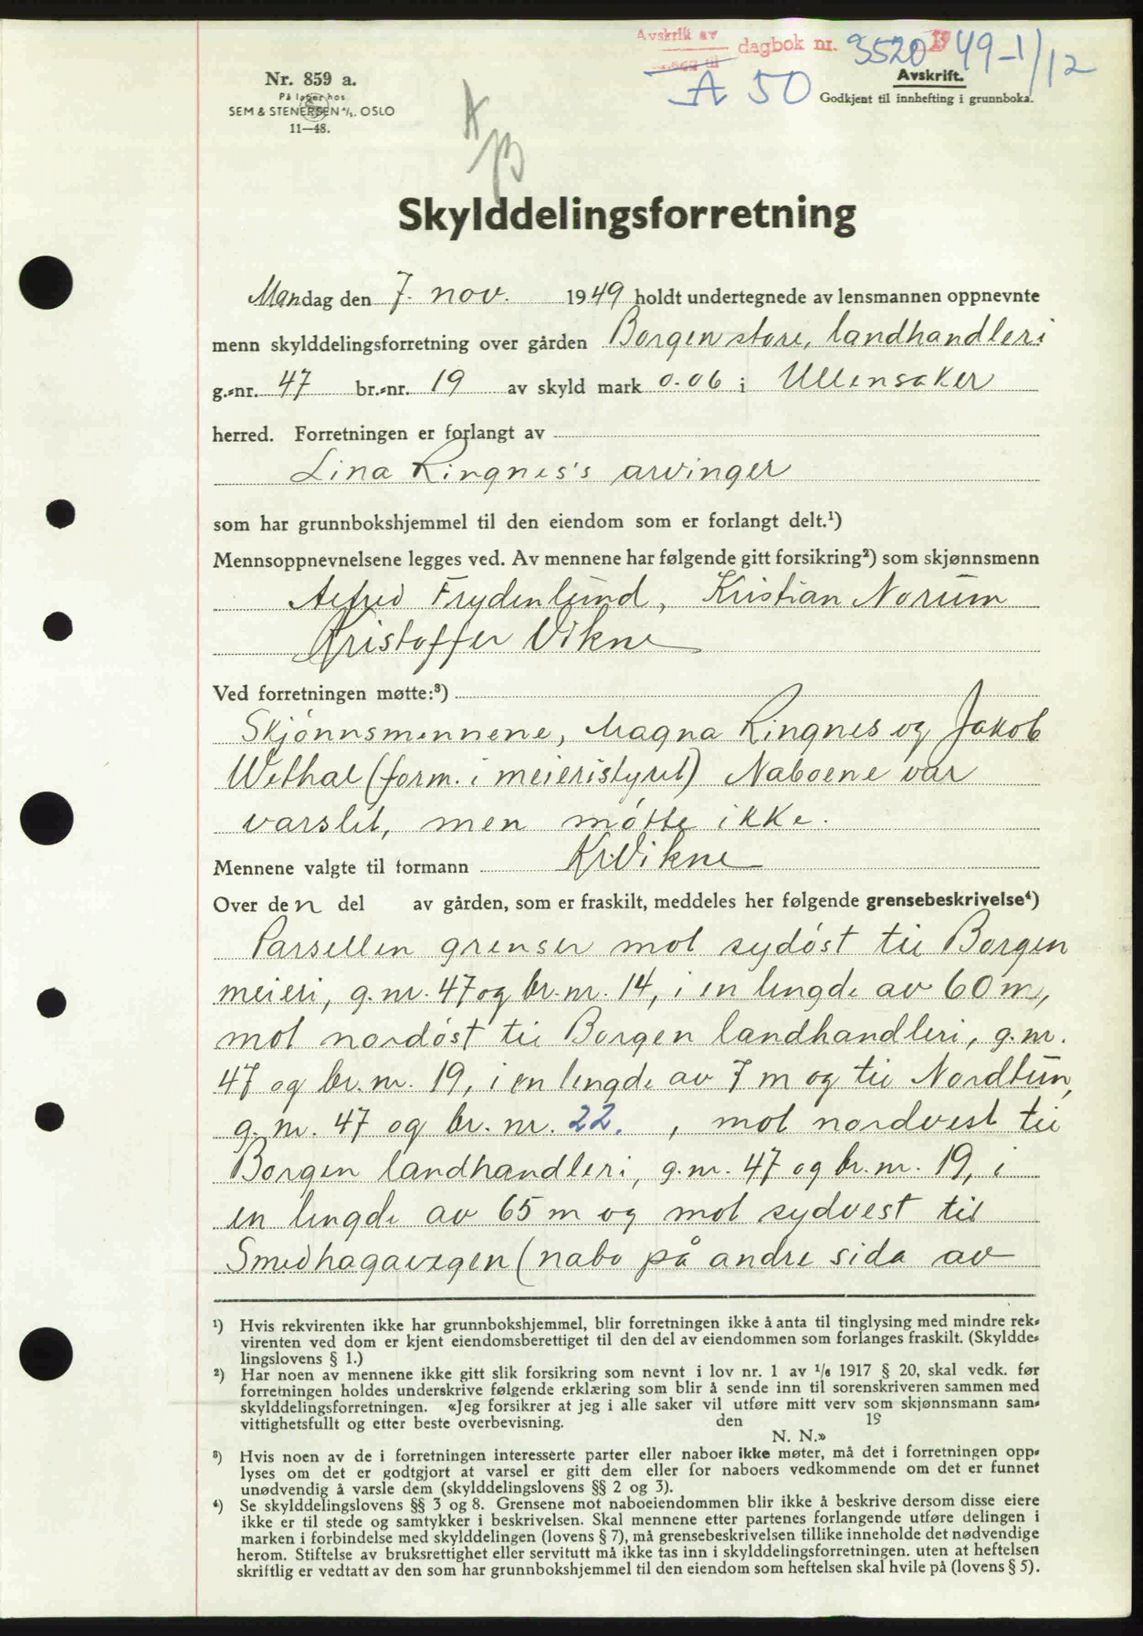 Avskrift av
dagbok nr. 3520 1949-1/12
A 50
Avskrift.
Godkjent til innhefting i grunnboka.
Nr. 859 a.
På lager hos
SEM & STENERSEN A/S. OSLO
11—48.
Skylddelingsforretning
Mandag den 7. nov. 1949 holdt undertegnede av lensmannen oppnevnte
menn skylddelingsforretning over gården Borgen store, landhandleri
g.-nr. 47 br.-nr. 19 av skyld mark 0.06 i Ullensaker
herred. Forretningen er forlangt av
Lina Ringnes's arvinger
som har grunnbokshjemmel til den eiendom som er forlangt delt.¹)
Mennsoppnevnelsene legges ved. Av mennene har følgende gitt forsikring²) som skjønnsmenn
Alfred Frydenlund, Kristian Norum
Kristoffer Vikne
Ved forretningen møtte:³)
Skjønnsmennene, Magna Ringnes og Jakob
Wethal (form. i meieristyret) Naboene var
varslet, men møtte ikke.
Mennene valgte til formann Kr. Vikne
Over den del av gården, som er fraskilt, meddeles her følgende grensebeskrivelse⁴)
Parsellen grenser mot sydøst til Borgen
meieri, g.nr. 47 og br.nr. 14, i en lengde av 60 m,
mot nordøst til Borgen landhandleri, g.nr.
47 og br.nr. 19, i en lengde av 7 m og til Nordtun,
g.nr. 47 og br.nr. 22. , mot nordvest til
Borgen landhandleri, g.nr. 47 og br.nr. 19, i
en lengde av 65 m og mot sydvest til
Smedhagavegen (nabo på andre sida av
¹) Hvis rekvirenten ikke har grunnbokshjemmel, blir forretningen ikke å anta til tinglysing med mindre rek-
virenten ved dom er kjent eiendomsberettiget til den del av eiendommen som forlanges fraskilt. (Skyldde-
lingslovens § 1.)
²) Har noen av mennene ikke gitt slik forsikring som nevnt i lov nr. 1 av 1/6 1917 § 20, skal vedk. før
forretningen holdes underskrive følgende erklæring som blir å sende inn til sorenskriveren sammen med
skylddelingsforretningen. «Jeg forsikrer at jeg i alle saker vil utføre mitt verv som skjønnsmann sam-
vittighetsfullt og etter beste overbevisning. den 19
N. N.»
³) Hvis noen av de i forretningen interesserte parter eller naboer ikke møter, må det i forretningen opp-
lyses om det er godtgjort at varsel er gitt dem eller for naboers vedkommende om det er funnet
unødvendig å varsle dem (skylddelingslovens §§ 2 og 3).
⁴) Se skylddelingslovens §§ 3 og 8. Grensene mot naboeiendommen blir ikke å beskrive dersom disse eiere
ikke er til stede og samtykker i beskrivelsen. Skal mennene etter partenes forlangende utføre delingen i
marken i forbindelse med skylddelingen (lovens § 7), må grensebeskrivelsen tillike inneholde det nødvendige
herom. Stiftelse av bruksrettighet eller servitutt må ikke tas inn i skylddelingsforretningen. uten at heftelsen
skriftlig er vedtatt av den som har grunnbokshjemmel til den eiendom som heftelsen skal hvile på (lovens § 5).